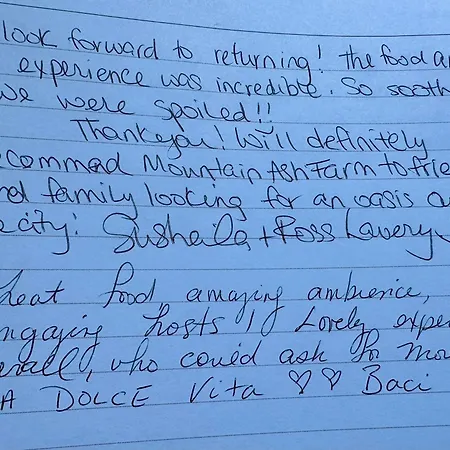 look forward to returning! the food an
experience was incredible. So sooth
we were spoiled!!
Thankyou! Will definitely
ecommed Mountain Ash Farm to frie
nd family looking for an oasis a
e city! Susheila + Ross Lavery
heat food, amazing ambience,
ngajing hosts!, Lovely exper
erall, who could ask for mor
A DOLCE Vita ♡ ♡ Baci